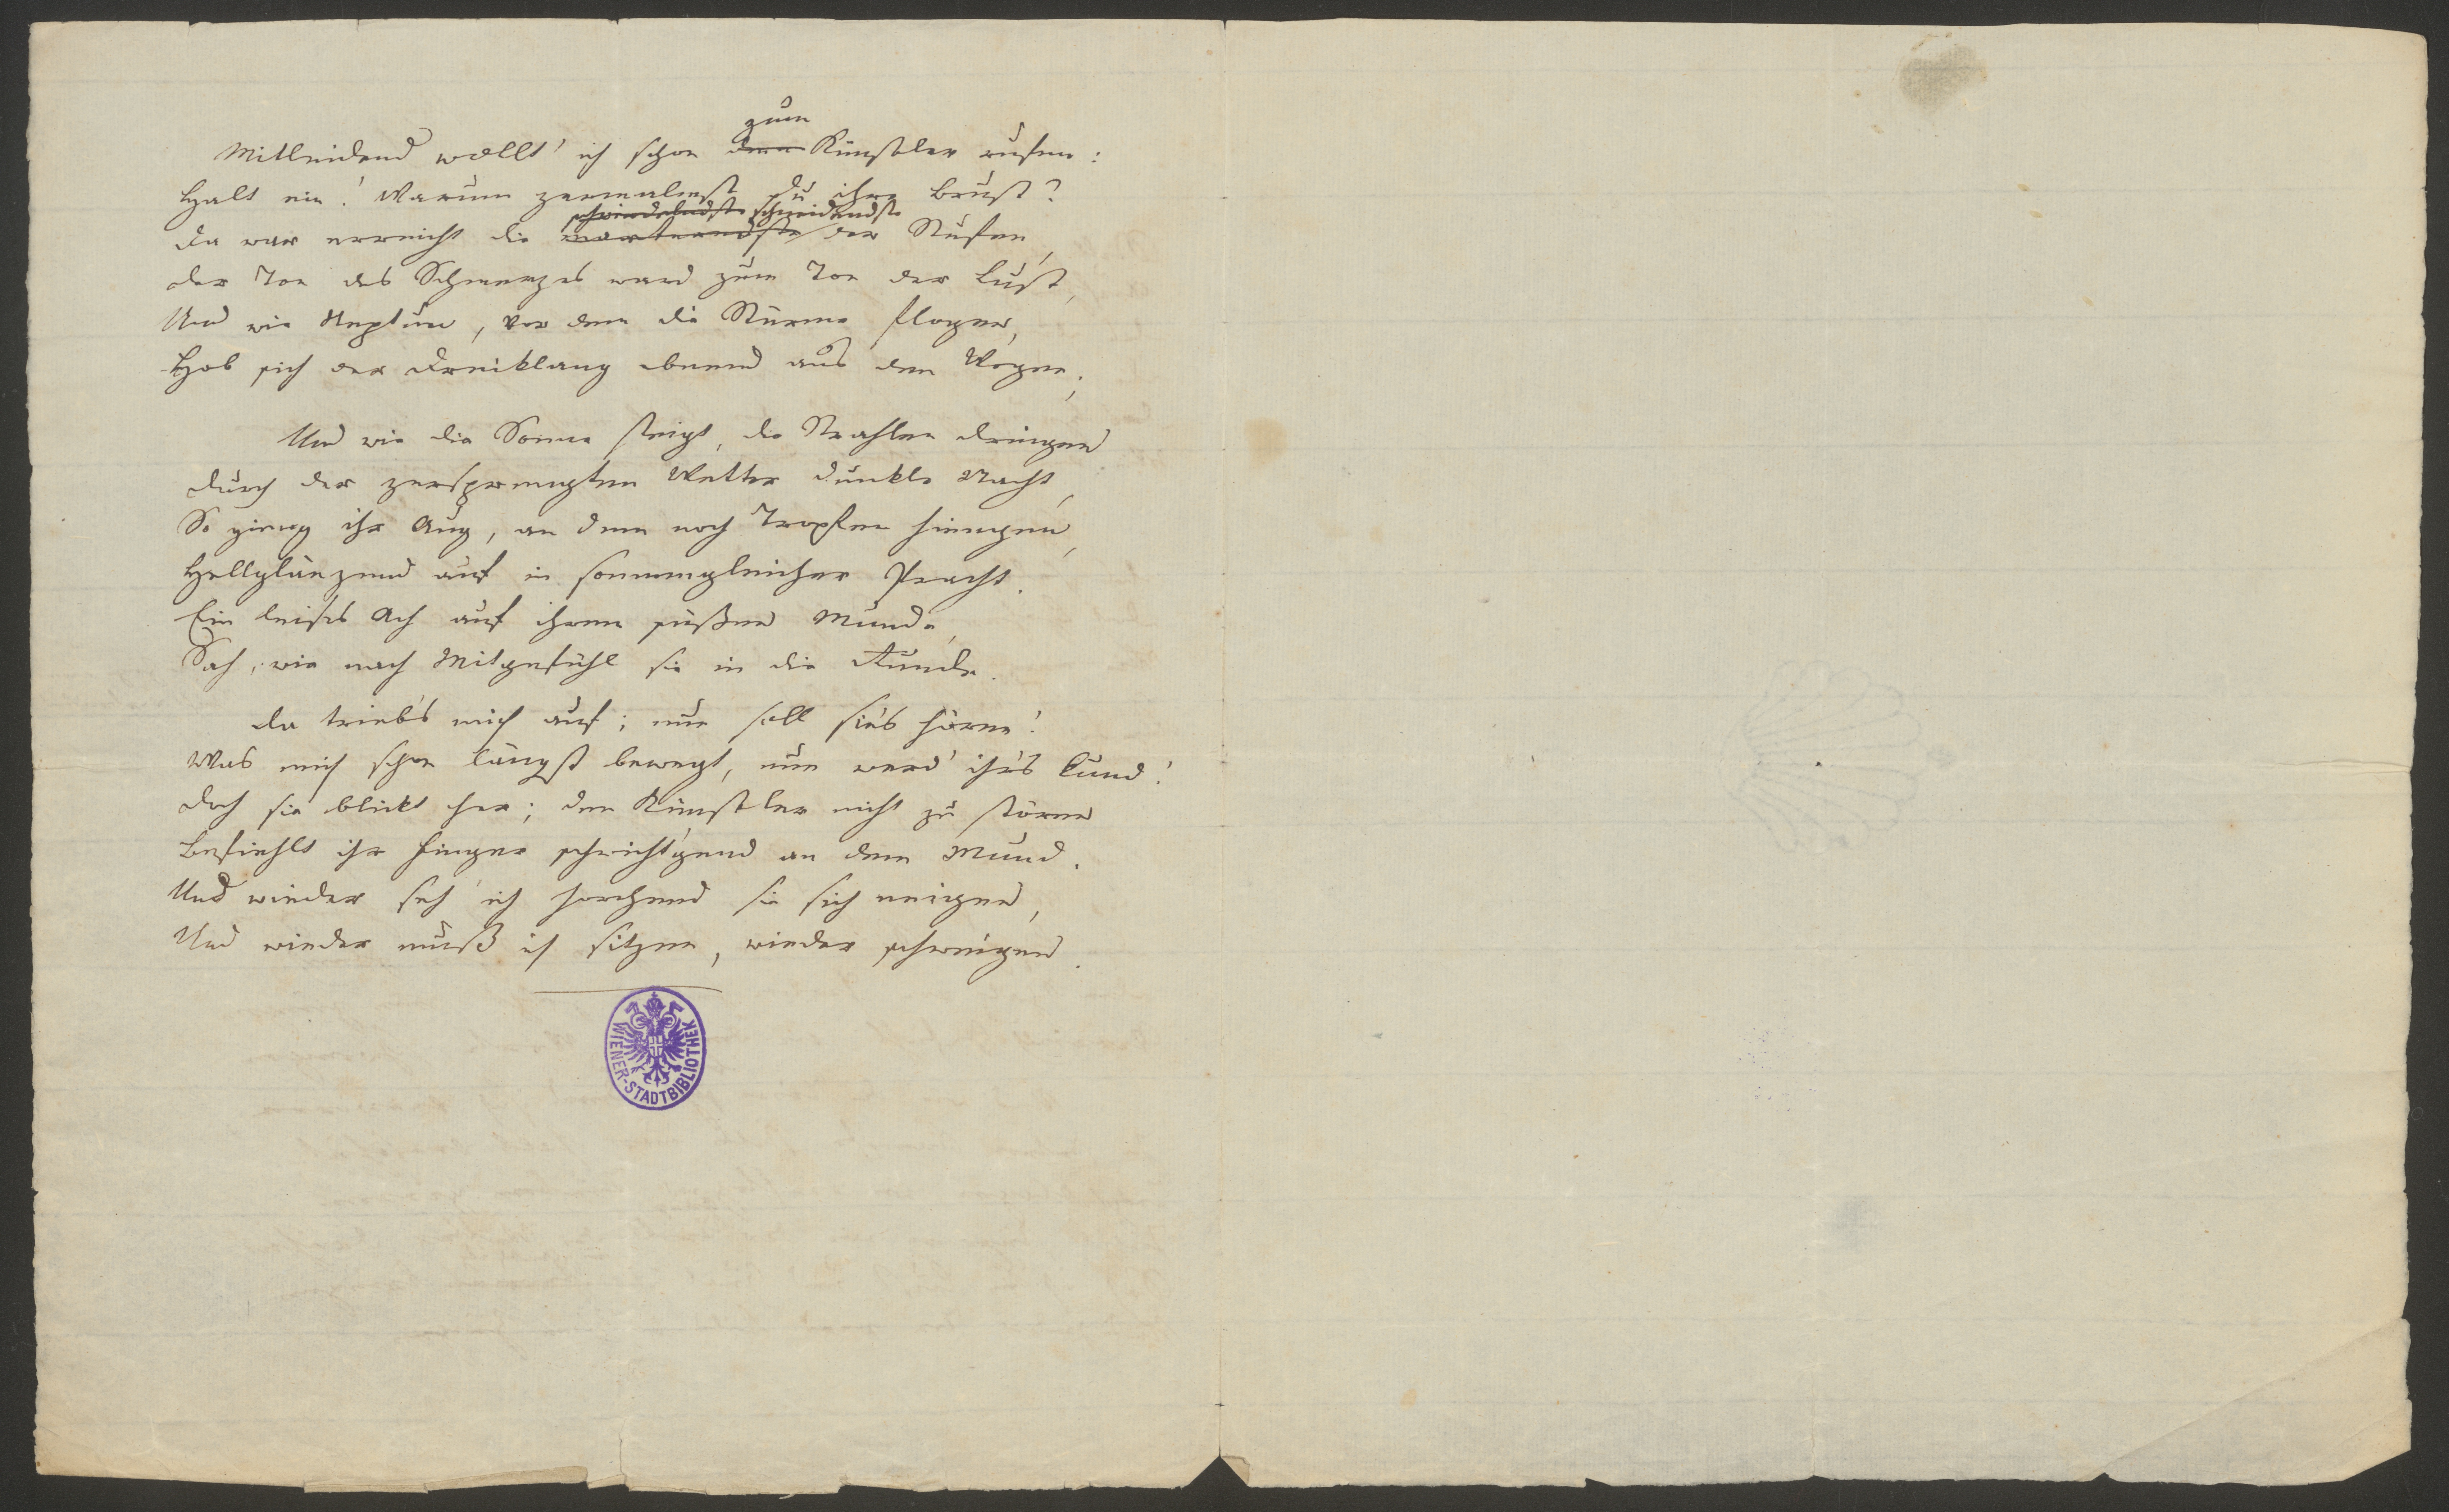 zum
Mitleidend wollt' ich schon dem Künstler rufen:
Halt ein! Warum zermalmst du ihre Brust?
schwindelndste schneidendste
Da war erreicht die marterndste der Stufen,
Der Ton des Schmerzes ward zum Ton der Lust,
Und wie Neptun, vor dem die Stürme flogen,
Hob sich der Dreiklang ebnend aus den Wogen;
Und wie die Sonne steigt, die Strahlen dringen
Durch der zersprengten Wetter dunkle Nacht,
So gieng ihr Aug, an dem noch Tropfen hiengen,
Hellglänzend auf in sonnengleicher Pracht.
Ein leises Ach auf ihrem süßen Munde,
Sah, wie nach Mitgefühl sie in die Runde.
Da triebs mich auf; nun soll sie's hören!
Was mich schon längst bewegt, nun werd' ihr's kund!
Doch sie blickt her; den Künstler nicht zu stören
Befiehlt ihr Finger schwicht'gend an dem Mund.
Und wieder seh' ich horchend sie sich neigen,
Und wieder muß ich sitzen, wieder schweigen.
WIENER-STADTBIBLIOTHEK